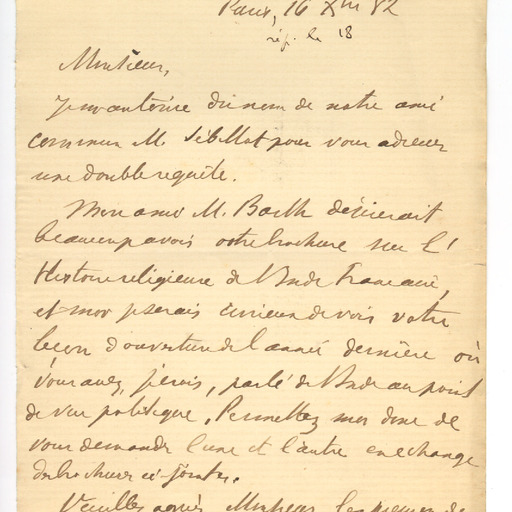 Paris, 16 Xbre 82
rép. le 18
Monsieur,
Je m'autorise du nom de notre ami
commun M. Sébillot pour vous adresser
une double requête.
Mon ami M. Barth désirerait
beaucoup avoir votre brochure sur l'
Histoire religieuse de l'Inde Française,
et moi je serais curieux de voir votre
leçon d'ouverture de l'année dernière où
vous avez, je crois, parlé de l'Inde au point
de vue politique. Permettez moi donc de
vous demander l'une et l'autre en échange
des brochures ci-jointes.
Veuillez agréer Monsieur les